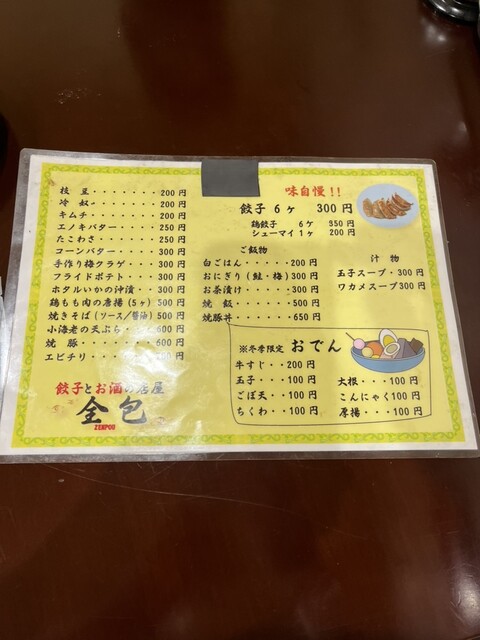 枝豆・・・・・・・200円
冷奴・・・・・・・200円
キムチ・・・・・・200円
エノキバター・・・・250円
たこわさ・・・・・・250円
コーンバター・・・・300円
手作り梅クラゲ・・・300円
フライドポテト・・・300円
ホタルいかの沖漬・・300円
鶏もも肉の唐揚(5ヶ)500円
焼きそば(ソース/醤油)500円
小海老の天ぷら・・・600円
焼豚・・・・・・・600円
エビチリ・・・・・
餃子とお酒の居屋
全包
ZENPOU
味自慢!!
餃子 6ヶ 300円
鶏餃子 6ケ 350円
シューマイ1ヶ 200円
ご飯物
白ごはん・・・・・200円
おにぎり(鮭・梅)300円
お茶漬け・・・・・300円
焼飯・・・・・・500円
焼豚丼・・・・・・650円
汁物
玉子スープ・300円
ワカメスープ300円
※冬季限定 おでん
牛すじ・・200円
玉子・・・100円
ごぼ天・・100円
ちくわ・・100円
大根・・・100円
こんにゃく100円
厚揚・・・100円